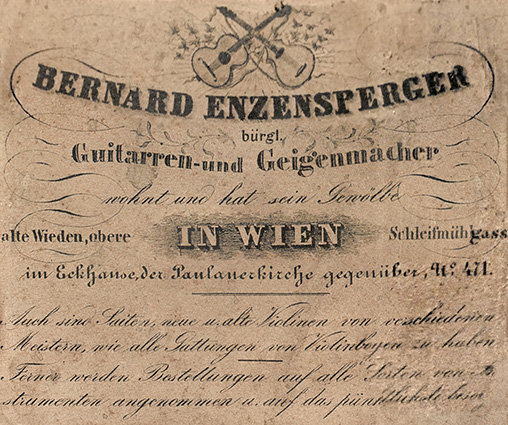 BERNARD ENZENSPERGER
bürgl.
Guitarren-und Geigenmacher
wohnt und hat sein Gewölbe
alte Wieden, obere IN WIEN Schleifmühgass
im Eckhause, der Paulanerkirche gegenüber, No. 471.
Auch sind Saiten, neue u. alte Violinen von verschiedenen
Meistern, wie alle Gattungen von Violinbogen zu haben
Ferner werden Bestellungen auf alle Sorten von
strumenten angenommen u. auf das pünktlichste besor